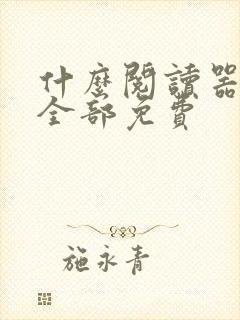 什麼閱讀器
全部免費
施永青